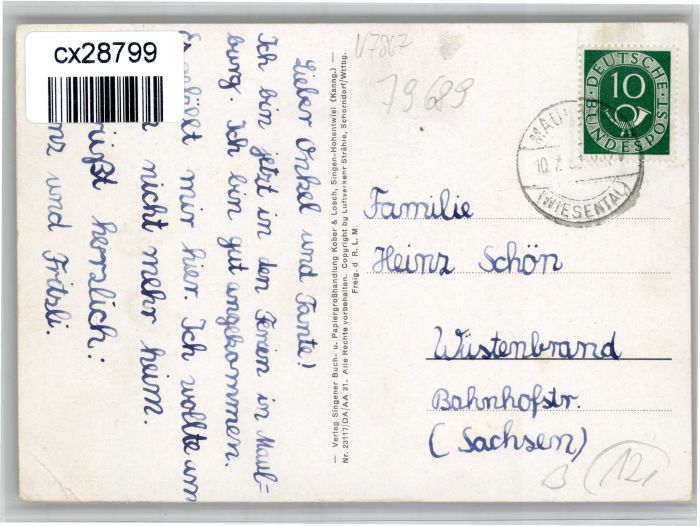 cx28799
Lieber Onkel und Tante!
Ich bin jetzt in den Ferien in Maul=
burg. Ich bin gut angekommen.
Es gefällt mir hier. Ich wollte am
nicht mehr heim.
grüßt herzlich:
Heinz und Fritzli.
— Verlag Singener Buch- u. Papiergroßhandlung Kober & Losch, Singen-Hohentwiel (Kanng.) —
Nr. 23117/DA/AA 31. Alle Rechte vorbehalten. Copyright by Luftverkehr Strähle, Schorndorf/Wttbg.
Freig. d R. L. M.
V7867
79689
DEUTSCHE
BUNDESPOST
10
(WIESENTAL)
Familie
Heinz Schön
Wüstenbrand
Bahnhofstr.
(Sachsen)
B
12